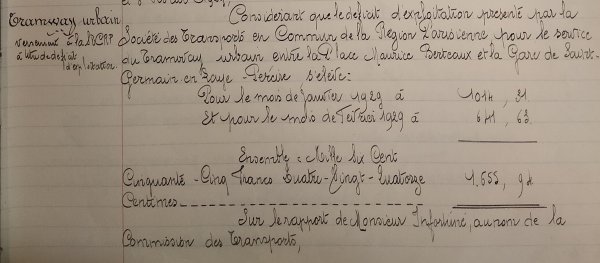 Tramway urbain
versement à la STCRP
à titre de déficit
d'exploitation
Considérant que le déficit d'exploitation présenté par la
Société des Transports en Commun de la Région Parisienne pour le service
du Tramway urbain entre la Place Maurice Berteaux et la Gare de Saint-
Germain en Laye - s'élève:
Pour le mois de Janvier 1929 à 1014, 31
Et pour le mois de Février 1929 à 641, 63
Ensemble: Mille Six Cent
Cinquante-Cinq Francs Quatre-Vingt-Quatorze 1.655, 94
Centimes
Sur le rapport de Monsieur au nom de la
Commission des Transports,